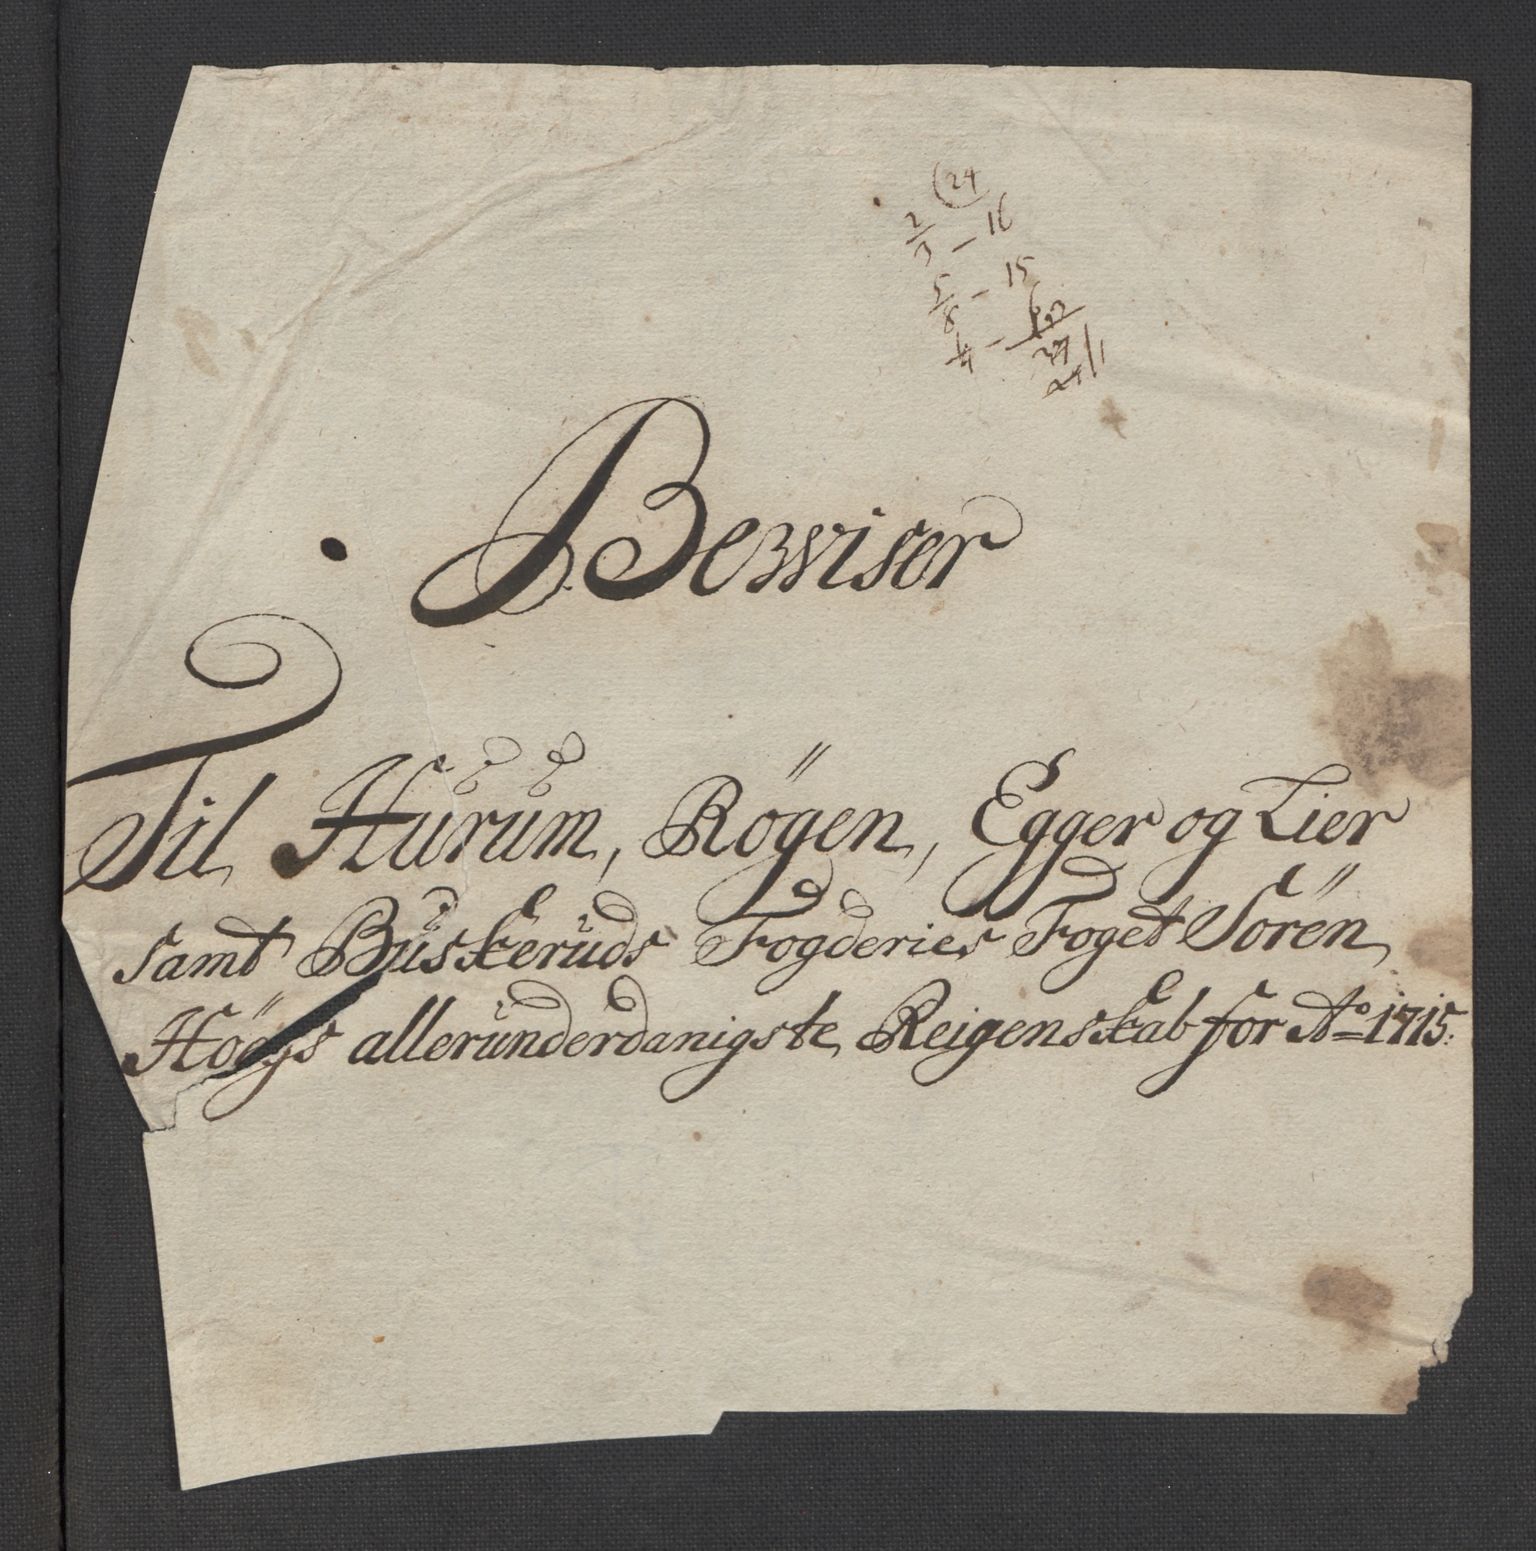 24
2/3 - 16
5/8 - 15
1/4 - 6
Bewiser
Til Hurum, Rögen, Egger og Lier
samt Buskeruds Fogderies Foget Sören
Höeÿs allerunderdanigste Reigenskab for Ao 1715.